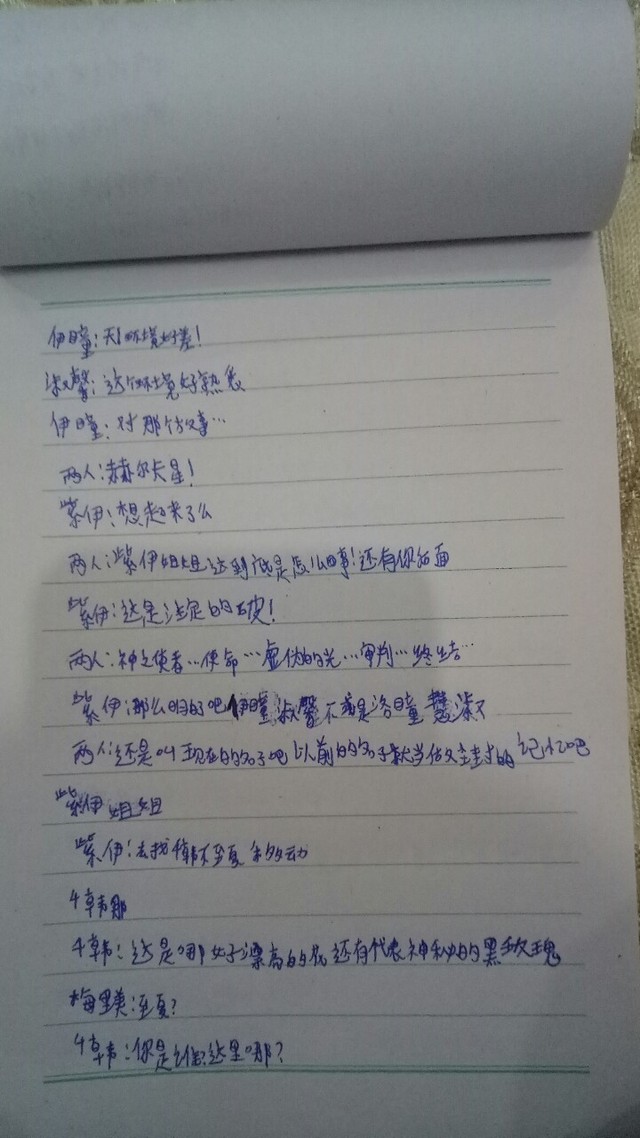 伊瞳:天!环境好差!
淑馨:这个环境好熟悉
伊瞳:对 那个故事…
两人:赫尔卡星!
紫伊:想起来了么
两人:紫伊姐姐 这到底是怎么回事!还有你后面
紫伊:这是注定的
两人:神之使者…使命…虚伪的光…审判…终结…
紫伊:那么明的吧 伊瞳 淑馨 不 是洛瞳
两人:还是叫现在的名子吧 以前的名子就当做 封的记忆吧
紫伊姐姐
紫伊:去找 韩 至夏
韩那
韩:这是哪 好漂亮的花 还有代表神秘的黑玫瑰
梅里美:至夏?
韩:你是谁?这里哪?